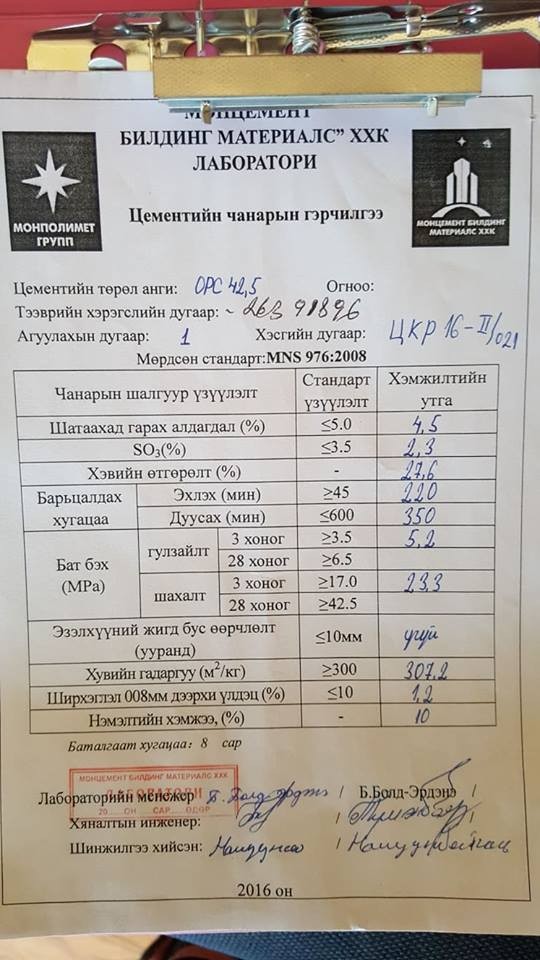 МОНЦЕМЕНТ
БИЛДИНГ МАТЕРИАЛС” ХХК
ЛАБОРАТОРИ
МОНПОЛИМЕТ
ГРУПП
МОНЦЕМЕНТ БИЛДИНГ
МАТЕРИАЛС ХХК
Цементийн чанарын гэрчилгээ
Цементийн төрөл анги: ОРС 42,5 Огноо:
Тээврийн хэрэгслийн дугаар: ~ 263 91896
Агуулахын дугаар: 1 Хэсгийн дугаар: ЦКР 16-II/021
Мөрдсөн стандарт:MNS 976:2008
Чанарын шалгуур үзүүлэлт Стандарт үзүүлэлт Хэмжилтийн утга
Шатаахад гарах алдагдал (%) ≤5.0 4,5
SO₃(%) ≤3.5 2,3
Хэвийн өтгөрөлт (%) - 27,6
Барьцалдах хугацаа Эхлэх (мин) ≥45 220
Дуусах (мин) ≤600 350
Бат бэх (МРа) гулзайлт 3 хоног ≥3.5 5,2
28 хоног ≥6.5
шахалт 3 хоног ≥17.0 23,3
28 хоног ≥42.5
Эзэлхүүний жигд бус өөрчлөлт (ууранд) ≤10мм үгүй
Хувийн гадаргуу (м²/кг) ≥300 307,2
Ширхэглэл 008мм дээрхи үлдэц (%) ≤10 1,2
Нэмэлтийн хэмжээ, (%) - 10
Баталгаат хугацаа: 8 сар
МОНЦЕМЕНТ БИЛДИНГ МАТЕРИАЛС ХХК
ЛАБОРАТОРИ
20 ОН САР ӨДӨР
Лабораторийн менежер / Б.Болд-Эрдэнэ /
Хяналтын инженер: / /
Шинжилгээ хийсэн: / /
2016 он